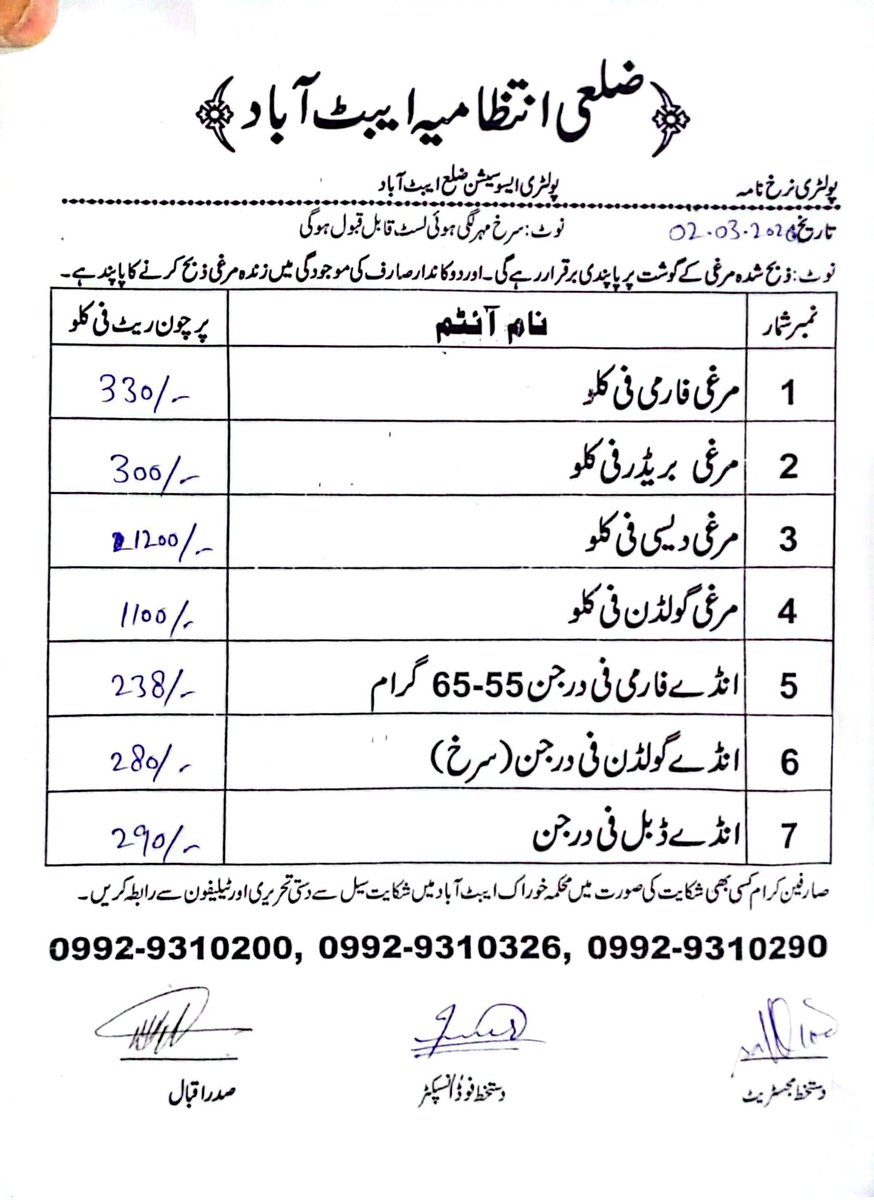 ضلعی انتظامیہ ایبٹ آباد
پولٹری نرخ نامہ پولٹری ایسوسیشن ضلع ایبٹ آباد
تاریخ 02-03-202 نوٹ: سرخ مہر لگی ہوئی لسٹ قابل قبول ہوگی
نوٹ: ذبح شدہ مرغی کے گوشت پر پابندی برقرار رہے گی۔ اور دوکاندار صارف کی موجودگی میں زندہ مرغی ذبح کرنے کا پابند ہے۔
نمبر شمار نام آئٹم پرچون ریٹ فی کلو
1 مرغی فارمی فی کلو 330/-
2 مرغی بریڈر فی کلو 300/-
3 مرغی دیسی فی کلو 1200/-
4 مرغی گولڈن فی کلو 1100/-
5 انڈے فارمی فی درجن 55-65 گرام 238/-
6 انڈے گولڈن فی درجن (سرخ) 280/-
7 انڈے ڈبل فی درجن 290/-
صارفین کرام کسی بھی شکایت کی صورت میں محکمہ خوراک ایبٹ آباد میں شکایت سیل سے دستی تحریری اور ٹیلیفون سے رابطہ کریں۔
0992-9310200, 0992-9310326, 0992-9310290
دستخط مجسٹریٹ دستخط فوڈ انسپکٹر صدر اقبال